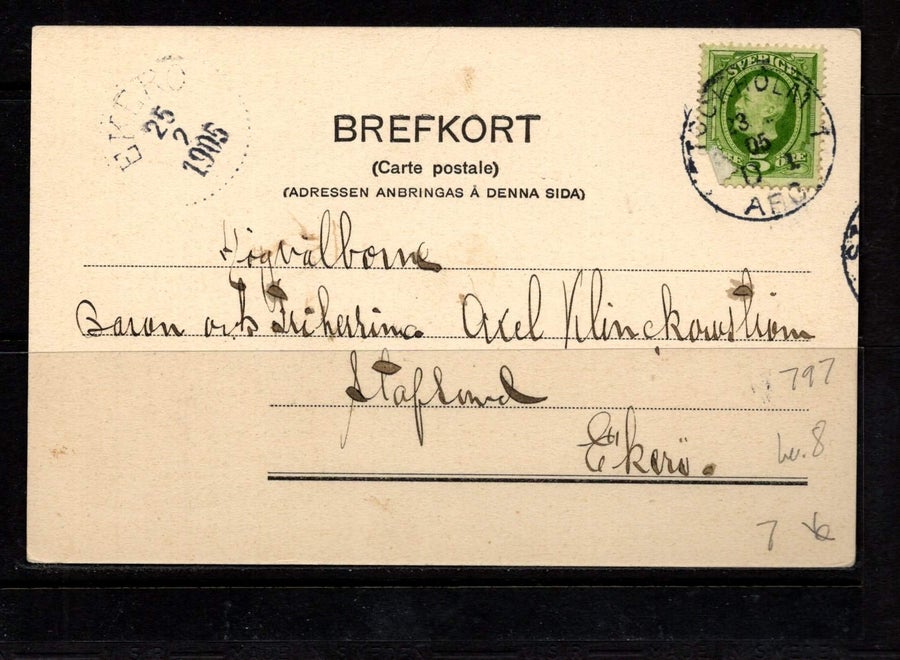 EKERÖ
25
2
1905
BREFKORT
(Carte postale)
(ADRESSEN ANBRINGAS Å DENNA SIDA)
SVERIGE
5 ÖRE
STOCKHOLM 1
05
AFG
Högvälborne
Baron och Friherrinn. Axel Klinckowström
Stafsund
Ekerö.
797
7